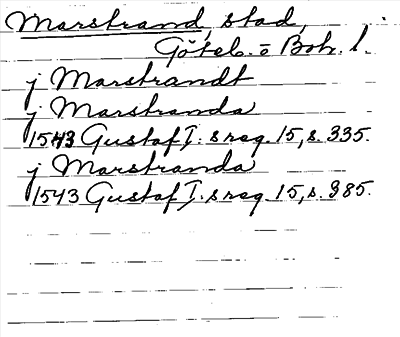 Marstrand, stad,
Göteb. o Boh. l.
j Marstrandt
j Marstranda
1543 Gustaf I:s reg. 15, s. 335.
j Marstranda
1543 Gustaf I:s reg. 15, s. 385.